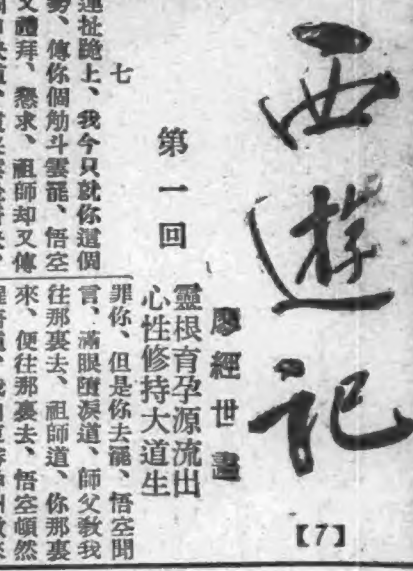 西遊記
【7】
廖經世畫
第一回
靈根育孕源流出
心性修持大道生
七
連扯跪上、我今只就你這個
勢、傳你個觔斗雲罷、悟空
又禮拜、懇求、祖師却又傳
罪你、但是你去罷、悟空聞
言、滿眼墮淚道、師父教我
往那裏去、祖師道、你那裏
來、便往那裏去、悟空頓然